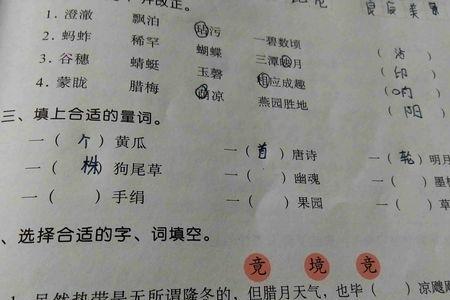 1. 澄澈 飘泊 玷污 一碧数顷 (沾)
2. 蚂蚱 稀罕 蝴蝶 三潭映月 (印)
3. 谷穗 蜻蜓 玉磬 相应成趣
4. 蒙胧 腊梅 荫凉 燕园胜地 (阴)
三、填上合适的量词。
一(个)黄瓜 一(首)唐诗 一(轮)明月
一(株)狗尾草 一( )幽魂 一( )
一( )手绢 一( )果园 一( )
、选择合适的字、词填空。
竞 境 竟
是无所谓隆冬的,但腊月天气,也毕( )凉飕